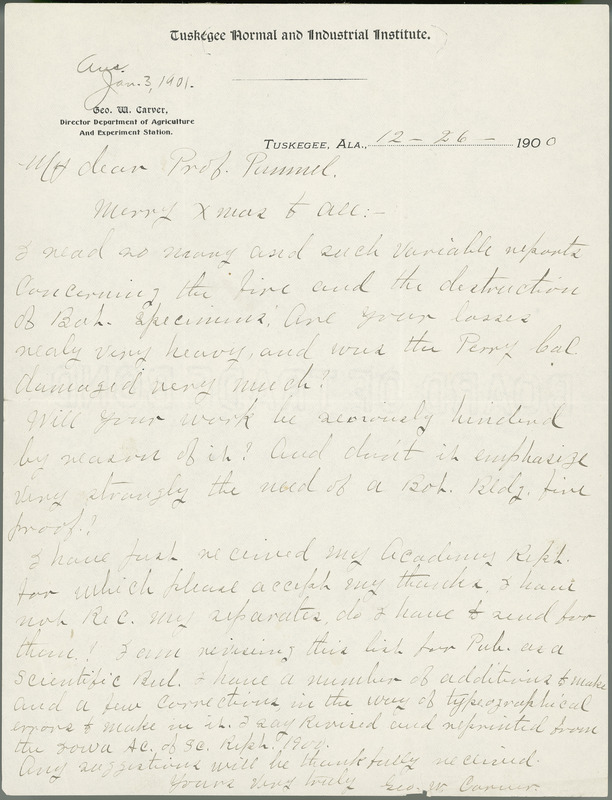 Tuskegee Normal and Industrial Institute.
Ans.
Jan. 3, 1901.
Geo. W. Carver,
Director Department of Agriculture
And Experiment Station.
Tuskegee, Ala., 12-26- 1900
My dear Prof. Pammel,
Merry Xmas to all:-
I read so many and such variable reports
concerning the fire and the distruction
of Bot. Specimins. Are your losses
realy very heavy, and was the Perry Col.
damaged very much?
Will your work be seriously hinderd
by reason of it? And don't it emphasize
very strongly the need of a Bot. Bldg. fire
proof.?
I have just received my Academy Rept.
for which please accept my thanks. I have
not Rec. my separates, do I have to send for
them.? I am revising this list for Pub. as a
Scientific Bul. I have a number of additions to make
and a few corrections in the way of typeographical
errors to make in it. I say Revised and reprinted from
the Iowa Ac. of Sc. Rept. 1900.
Any suggestions will be thankfully received.
Yours Very truly Geo. W. Carver.